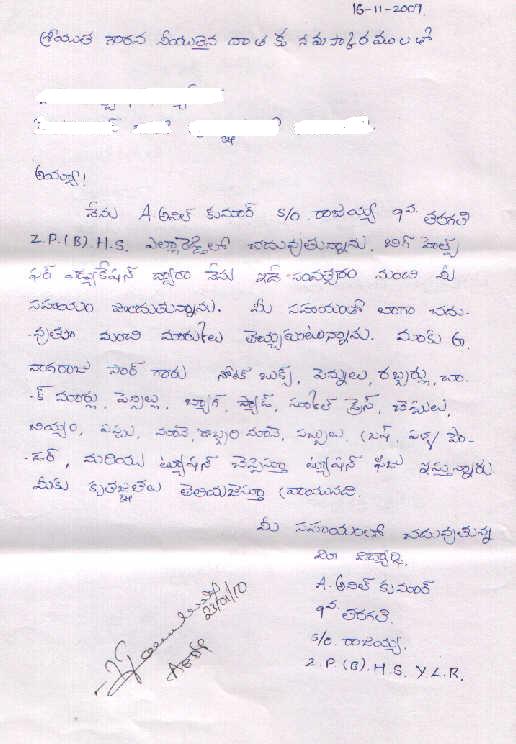 16-11-2009
శ్రీయుత గౌరవ నీయులైన దాత కు నమస్కారములతో
అయ్యా!
నేను A. అనిల్ కుమార్ S/o. రాజయ్య 9వ తరగతి
Z.P.(B).H.S. ఎల్లారెడ్డిలో చదువుతున్నాను. బిగ్ హెల్ప్
ఫర్ ఎడ్యుకేషన్ ద్వారా నేను ఇదే సంవత్సరం నుంచి మీ
సహాయం పొందుతున్నాను. మీ సహాయంతో బాగా చదు-
-వుతూ మంచి మార్కులు తెచ్చుకుంటున్నాను. మాకు G.
నాగరాజు సార్ గారు నోట్ బుక్స్, పెన్నులు, రబ్బర్లు, చా-
-క్ మార్లు, పెన్సిల్లు, బ్యాగ్, ప్యాడ్, స్కూల్ డ్రెస్, చెప్పులు,
బియ్యం, పప్పు, నూనె, కొబ్బరి నూనె, సబ్బులు, బ్రష్, పళ్ళ పౌ-
-డర్, మరియు ట్యూషన్ చెప్పిస్తూ ట్యూషన్ ఫీజు ఇస్తున్నారు
మీకు కృతజ్ఞతలు తెలియజేస్తూ వ్రాయునది.
మీ సహాయంలో చదువుతున్న
మీ విద్యార్థి,
A. అనిల్ కుమార్
9వ తరగతి.
S/o. రాజయ్య.
Z.P.(B).H.S. Y.L.R.
23/01/10